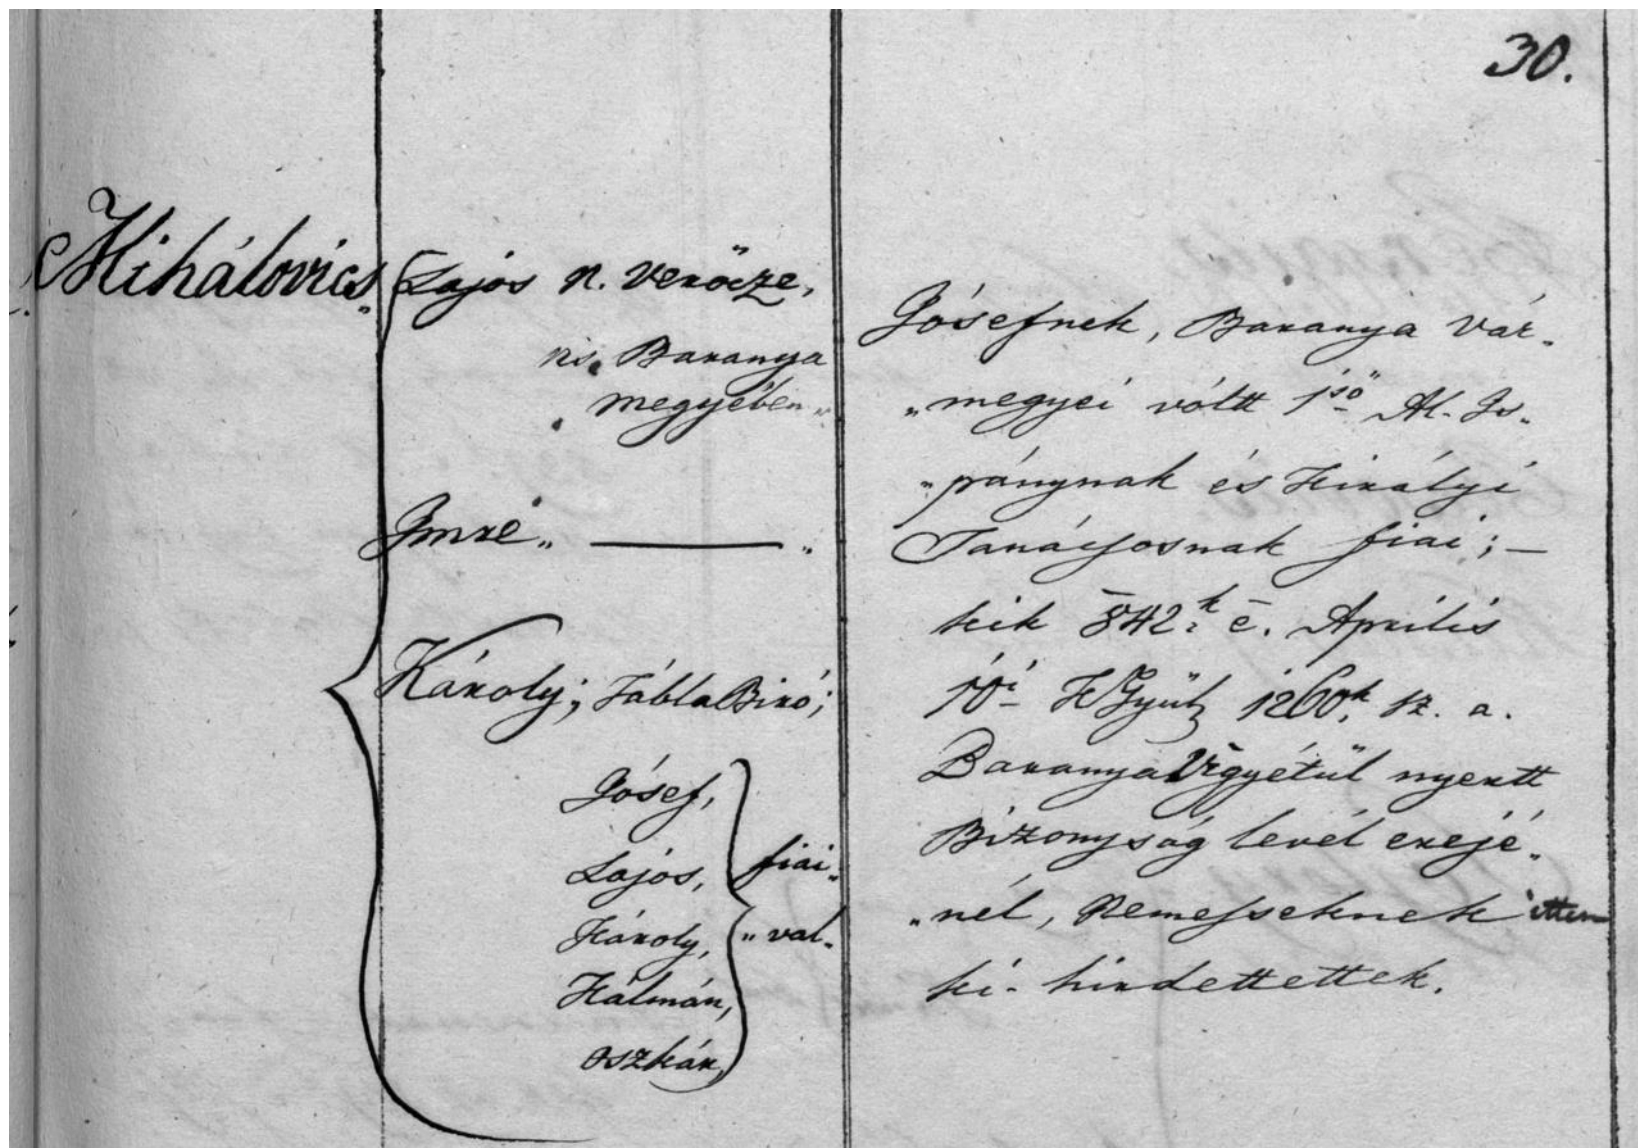 30.
Mihálovics„
Lajos N. Verőcze,
ns. Baranya
megyében„
Imre„ ——— „
Károly; Tábla Biró;
Jósef,
Lajos,
Károly,
Kálmán,
Oszkár,
fiai„
„val„
Jósefnek, Baranya vár„
„megyei vóltt 1ső Al-Is„
„pánynak és Királyi
Tanácsosnak fiai; —
kik 842k é. Április
10i KGyűl 1260k sz. a.
Baranya Vgyétül nyertt
Bizonyság levél erejé„
„nél, Nemesseknek itten
ki-hirdettettek.